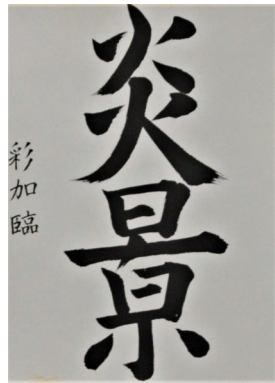 炎景
彩加臨